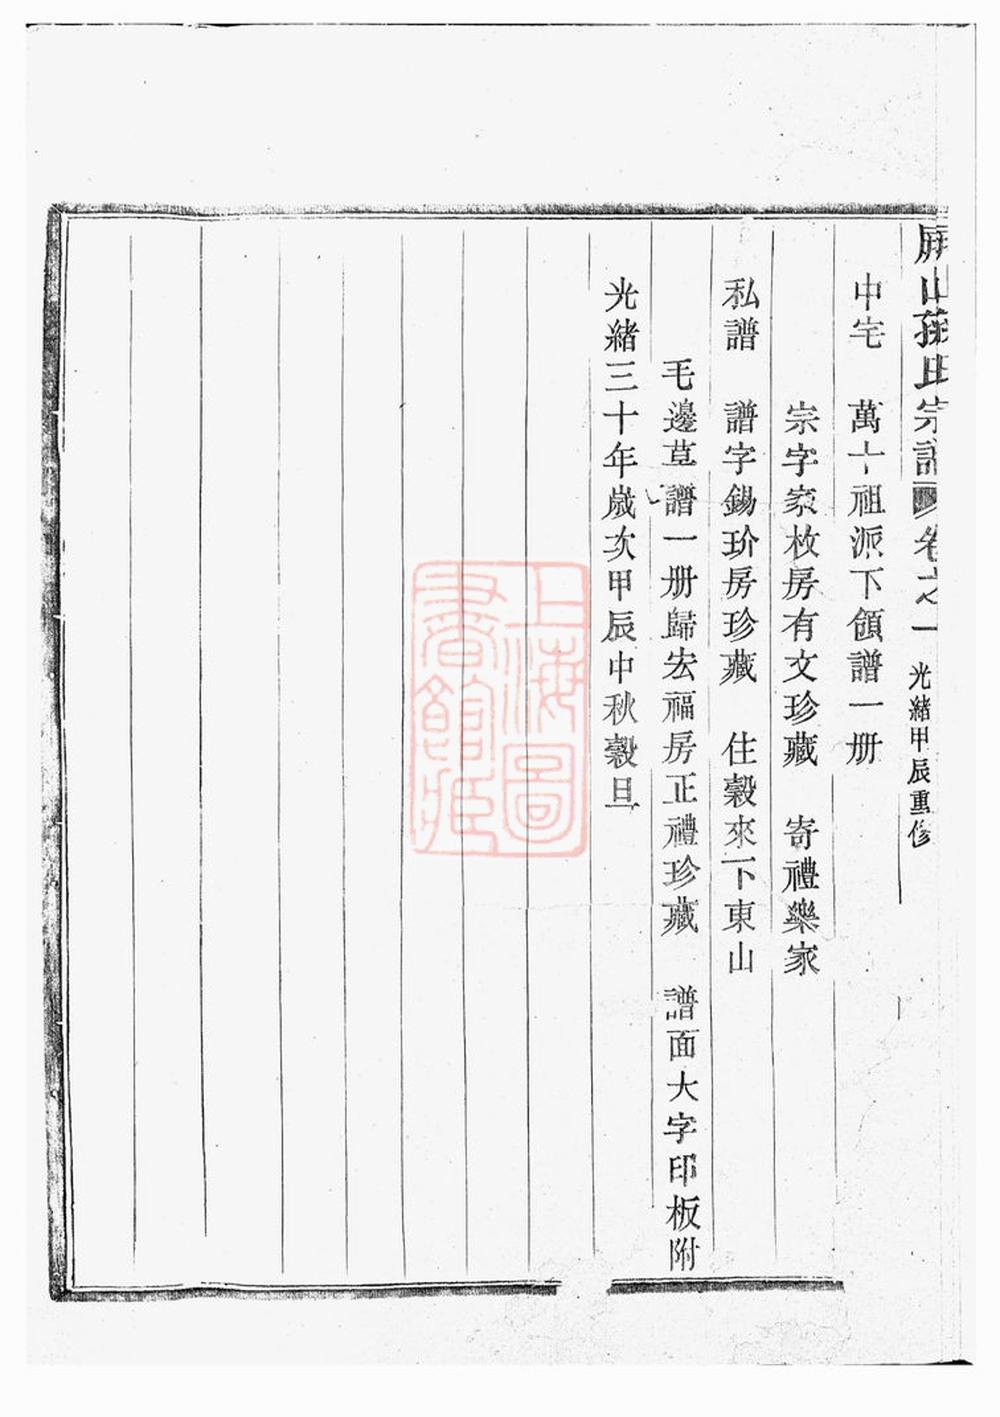 屏山孫氏宗譜 卷之一 光緒甲辰重修
中宅 萬十祖派下領譜一册
宗字家枚房有文珍藏 寄禮樂家
私譜 譜字錫玠房珍藏 住穀來下東山
毛邊草譜一册歸宏福房正禮珍藏 譜面大字印板附
光緒三十年歲次甲辰中秋穀旦
上海圖書館藏